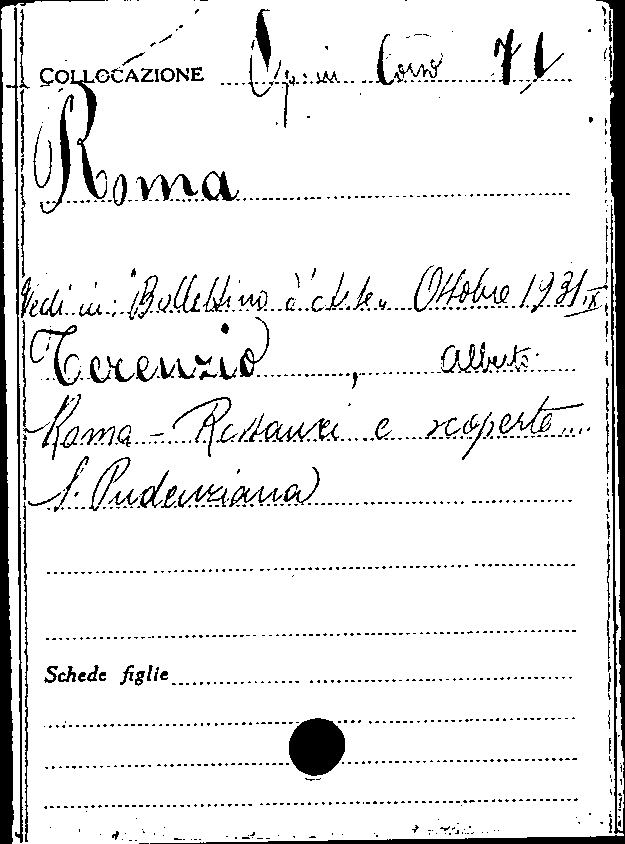 COLLOCAZIONE Op. in Corso 71
Roma
Vedi in: "Bollettino d'Arte" Ottobre 1931 IX
Terenzio, Alberto
Roma - Restauri e scoperte....
S. Pudenziana
Schede figlie